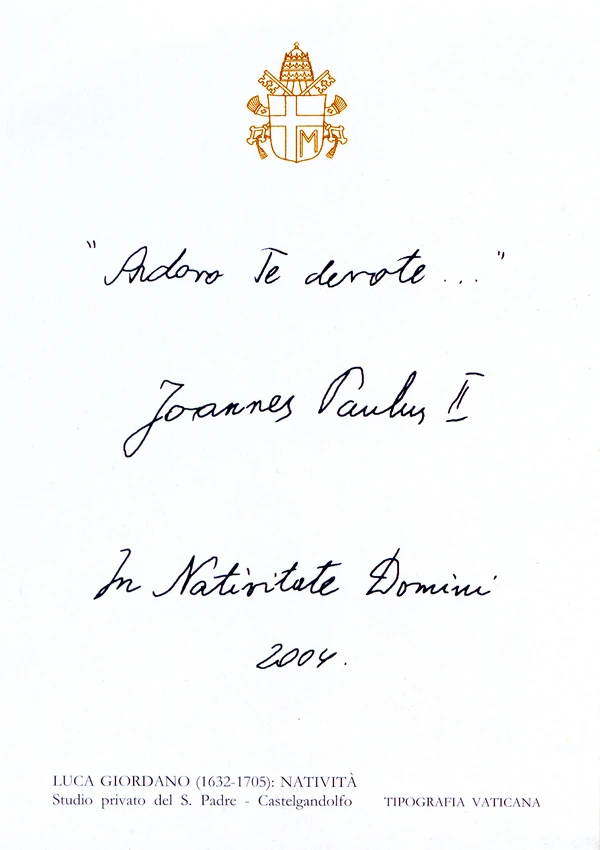 M
"Adoro Te devote..."
Joannes Paulus II
In Nativitate Domini
2004.
LUCA GIORDANO (1632-1705): NATIVITÀ
Studio privato del S. Padre - Castelgandolfo TIPOGRAFIA VATICANA